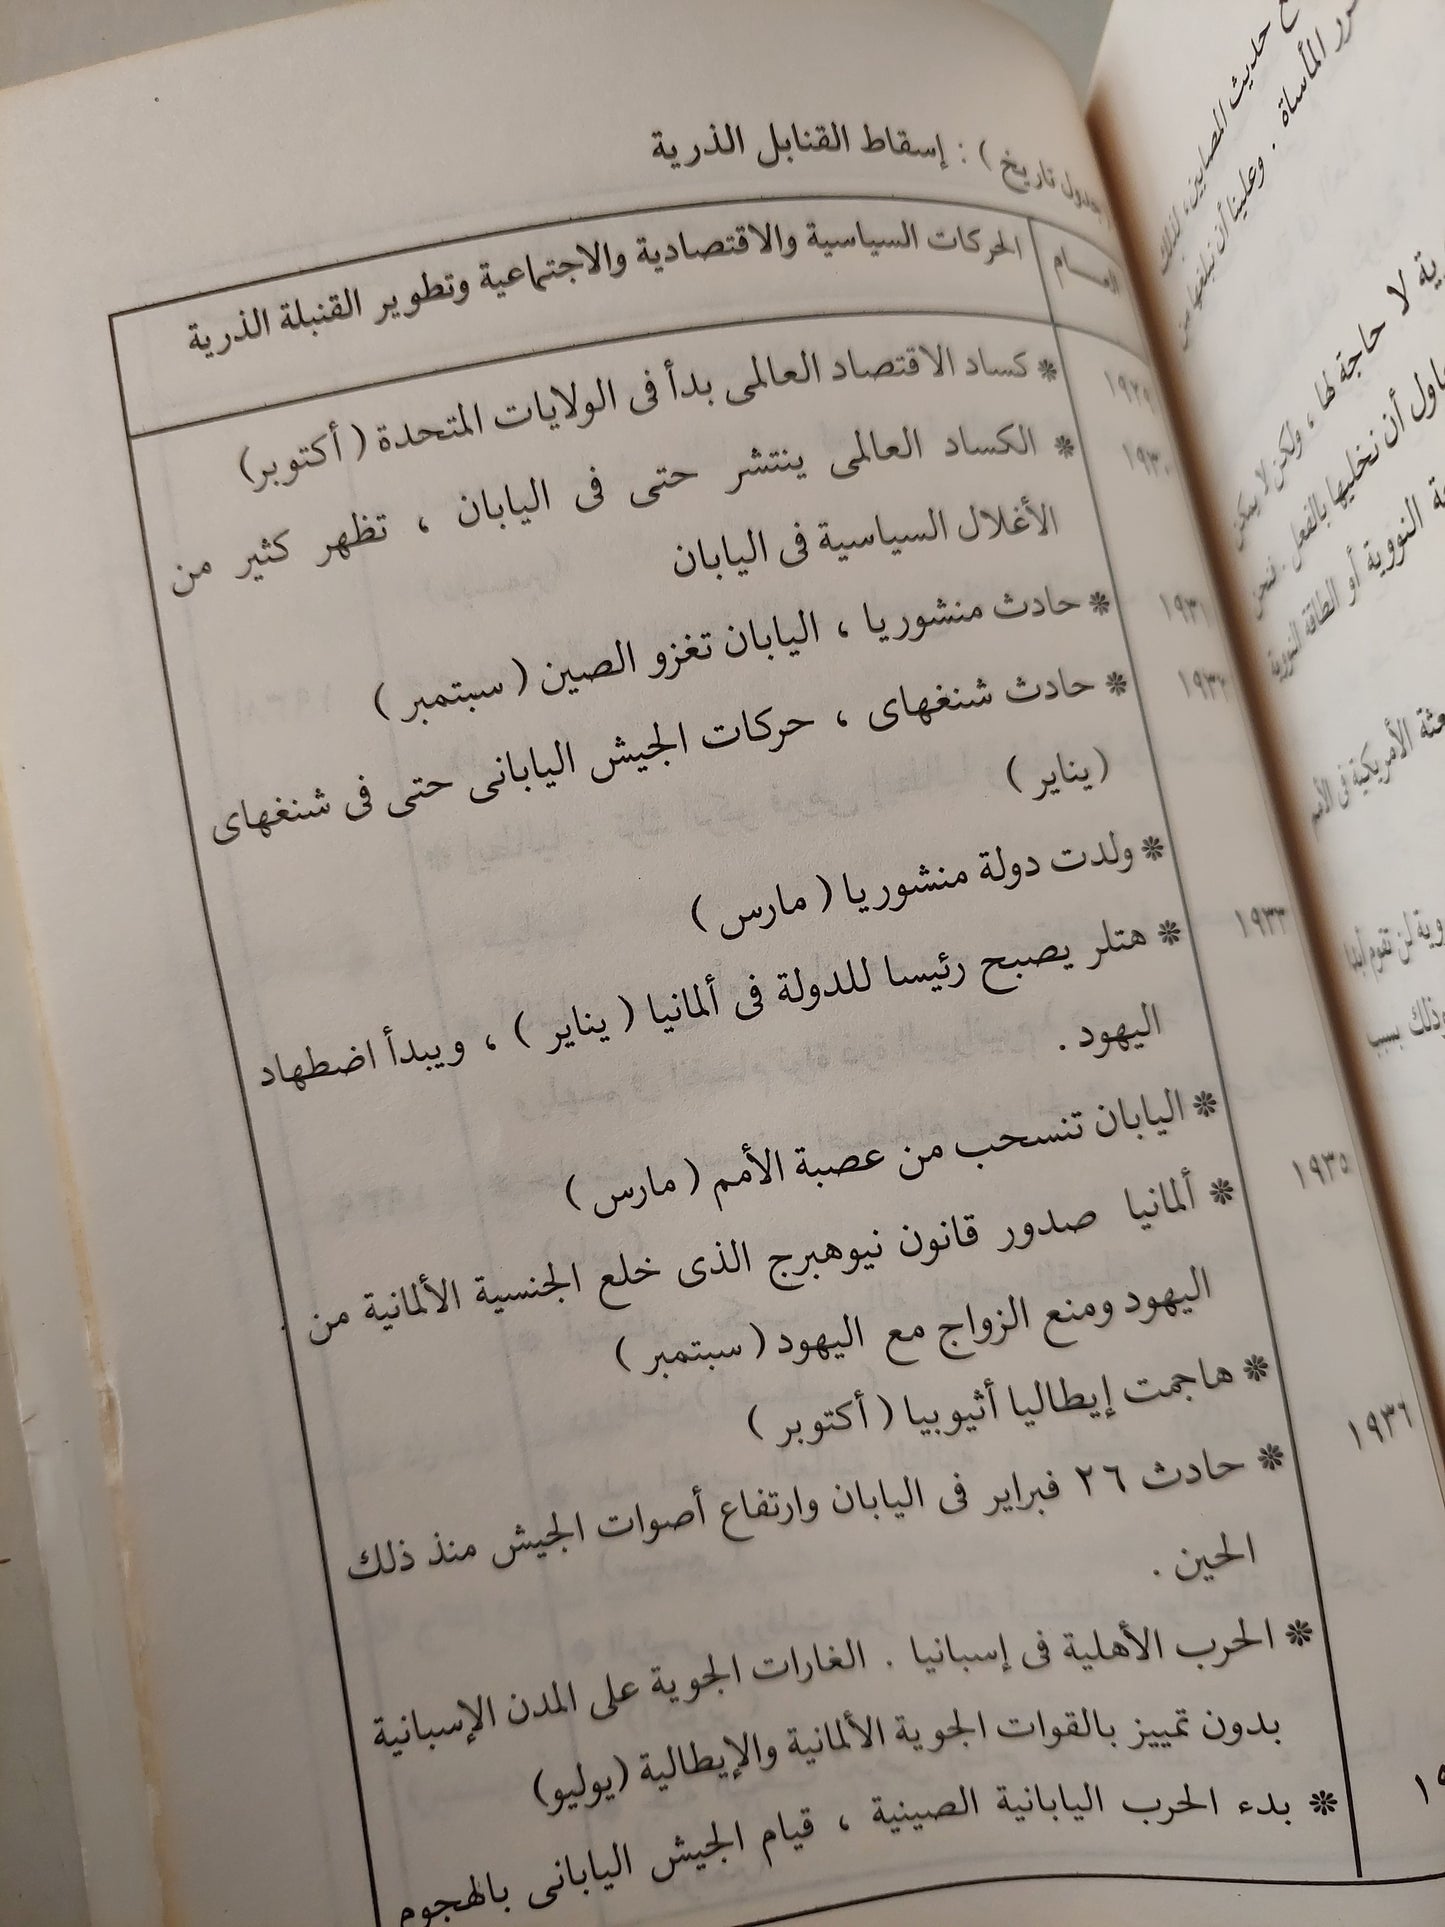 ( جدول تاريخ ) : إسقاط القنابل الذرية
العـــام
الحركات السياسية والاقتصادية والاجتماعية وتطوير القنبلة الذرية
١٩٢٩
❋ كساد الاقتصاد العالمى بدأ فى الولايات المتحدة ( أكتوبر)
١٩٣٠
❋ الكساد العالمى ينتشر حتى فى اليابان ، تظهر كثير من
الأغلال السياسية فى اليابان
١٩٣١
❋ حادث منشوريا ، اليابان تغزو الصين ( سبتمبر )
١٩٣٢
❋ حادث شنغهاى ، حركات الجيش اليابانى حتى فى شنغهاى
(يناير )
❋ ولدت دولة منشوريا ( مارس )
١٩٣٣
❋ هتلر يصبح رئيسا للدولة فى ألمانيا ( يناير ) ، ويبدأ اضطهاد
اليهود .
❋ اليابان تنسحب من عصبة الأمم ( مارس )
١٩٣٥
❋ ألمانيا صدور قانون نيوهبرج الذى خلع الجنسية الألمانية من
اليهود ومنع الزواج مع اليهود ( سبتمبر )
❋ هاجمت إيطاليا أثيوبيا ( أكتوبر )
١٩٣٦
❋ حادث ٢٦ فبراير فى اليابان وارتفاع أصوات الجيش منذ ذلك
الحين .
❋ الحرب الأهلية فى إسبانيا . الغارات الجوية على المدن الإسبانية
بدون تمييز بالقوات الجوية الألمانية والإيطالية (يوليو)
❋ بدء الحرب اليابانية الصينية ، قيام الجيش اليابانى بالهجوم
حديث المصابين، لذلك
المأساة . وعلينا أن نبلغها من
لا حاجة لها ، ولكن لا يمكن
أن نخليها بالفعل . فنحن
النووية أو الطاقة النووية
الأمريكية فى الأمم
لن تقوم أبدا
وذلك بسبب